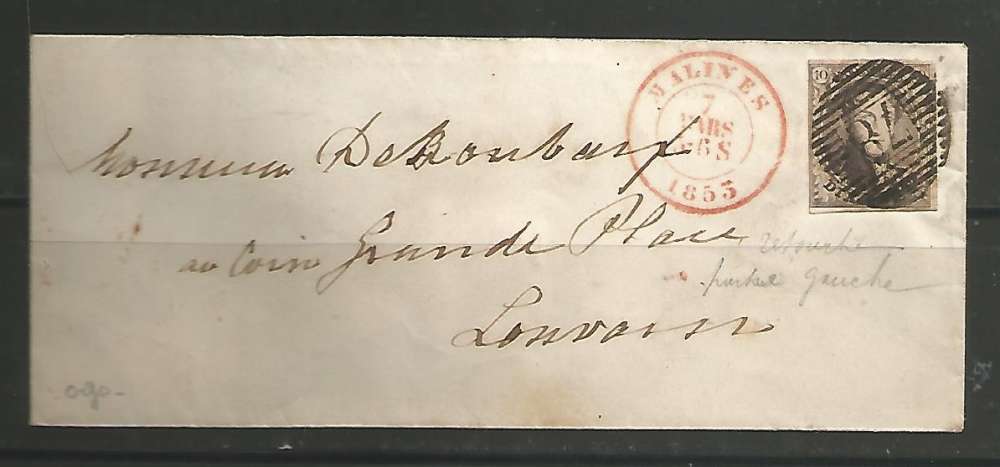 MALINES
7
MARS
6 S
1853
10
Monsieur DeKoubaix
au Coin Grande Place
Louvain
retouche
gauche